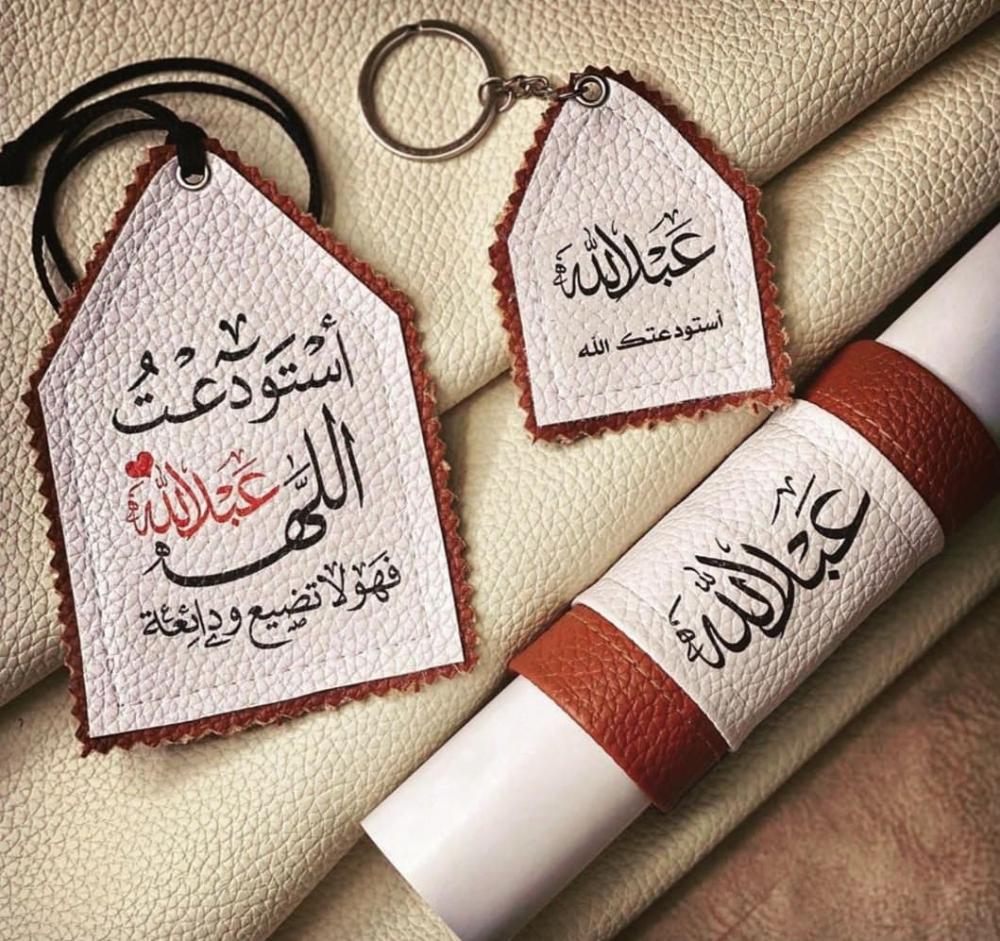 أستودعتُ
اللهَ عبدالله
فهو لا تضيع ودائِعهُ
عبدالله
أستودعتك الله
عبدالله